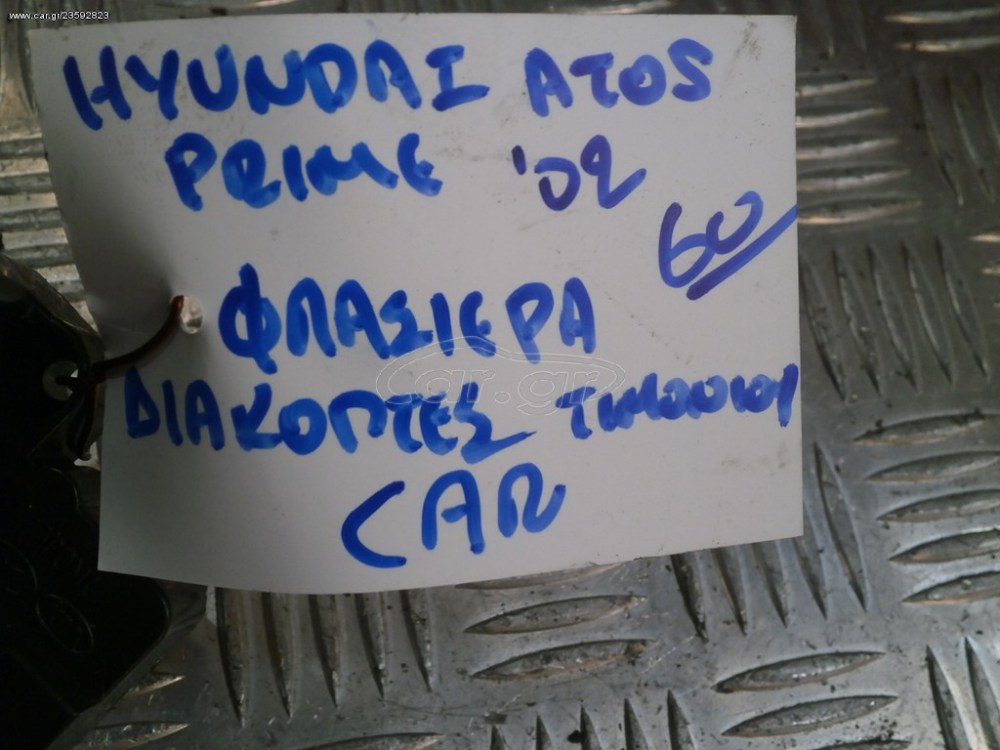 www.car.gr/23592823
HYUNDAI ATOS
PRIME '02
60
ΦΛΑΣΙΕΡΑ
car.gr
ΔΙΑΚΟΠΤΕΣ ΤΙΜΟΝΙΟΥ
CAR